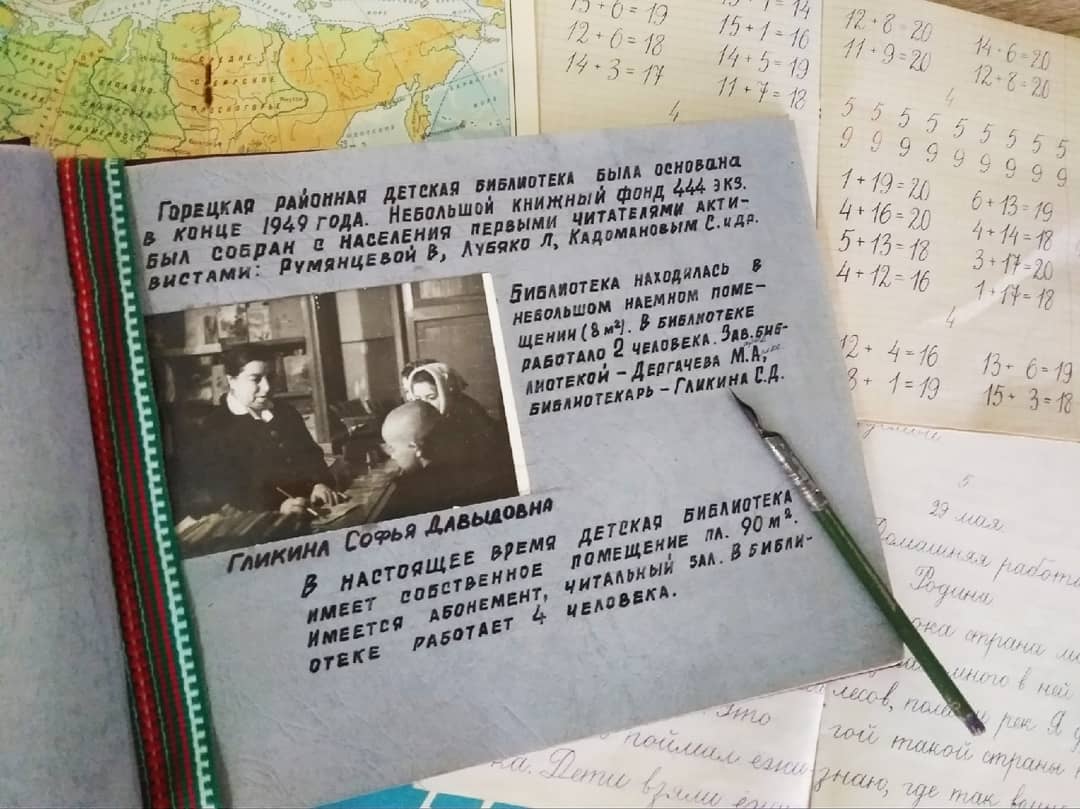 Горецкая районная детская библиотека была основана
в конце 1949 года. Небольшой книжный фонд 444 экз.
был собран с населения первыми читателями акти-
вистами: Румянцевой В, Лубяко Л, Кадомановым С. и др.
Библиотека находилась в
небольшом наемном поме-
щении (8 м²). В библиотеке
работало 2 человека. Зав. биб-
лиотекой – Дергачева М.А,
библиотекарь – Гликина С.Д.
Гликина Софья Давыдовна
В настоящее время детская библиотека
имеет собственное помещение пл. 90 м².
Имеется абонемент, читальный зал. В библи-
отеке работает 4 человека.
13 + 6 = 19
12 + 6 = 18
14 + 3 = 17
15 + 1 = 16
14 + 5 = 19
11 + 7 = 18
4
12 + 8 = 20
11 + 9 = 20
14 + 6 = 20
12 + 8 = 20
4
5 5 5 5 5 5 5 5 5
9 9 9 9 9 9 9 9 9
1 + 19 = 20
4 + 16 = 20
5 + 13 = 18
4 + 12 = 16
6 + 13 = 19
4 + 14 = 18
3 + 17 = 20
1 + 17 = 18
4
12 + 4 = 16
+ 1 = 19
13 + 6 = 19
15 + 3 = 18
5
29 мая
Домашняя работа
Родина
страна
много в ней
лесов, полей и рек Я
гой такой страны
знаю, где так
Это
поймал
ка. Дети взяли